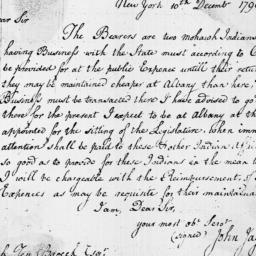 New York 10th Decembr 179
ear Sir
The Bearers are two Mohawk Indians
having Business with the State must according to C
be provided for at the public Expence untill their retu
they may be maintained cheaper at Albany than here;
Business must be transacted there I have advised to go
there for the present I expect to be at Albany at th
appointed for the sitting of the Legislature. When imm
attention shall be paid to these Mother Indians if
so good as to provide for these Indians in the mean t
I will be chargeable with the Reimbursement, of
Expences as may be requisite for their maintainan
I am, Dear Sir,
your most ob.t Serv.t
(signed) John Ja
h Ten Broeck Esq.r